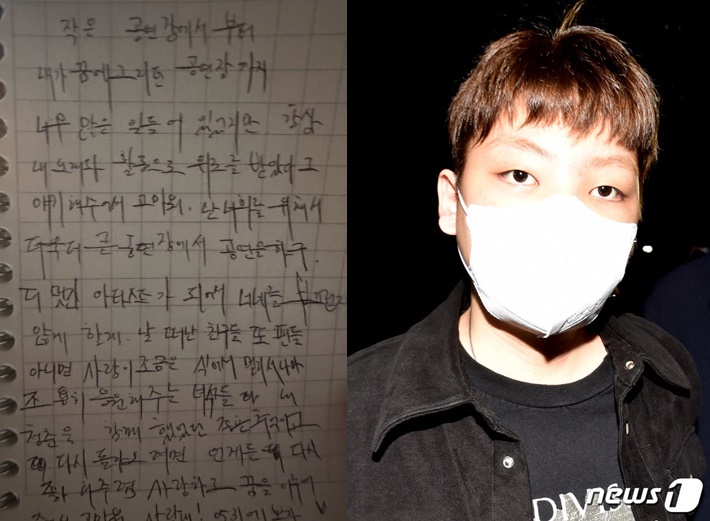 작은 공연장에서 부터
내가 꿈에그리던 공연장 까지
너무 많은 일들이 있겠지만 항상
내 노래와 활동으로 위로를 받았다고
얘기해주어서 고마워. 난 너희를 위해서
더욱더 큰 공연장에서 공연을하구
더 멋진 아티스트가 되어서 너네들
않게 할게. 날 떠난 친구들 또 팬들
아니면 사랑이 조금은 식어서 멀리서나마
조용히 응원해주는 녀석들 다 내
청춘을 함께 했었던 친구고
다시 돌아오려면 언제든 다시
와주렴 사랑하고 꿈을 이루어
고마워 사랑해!
news1
DIVI